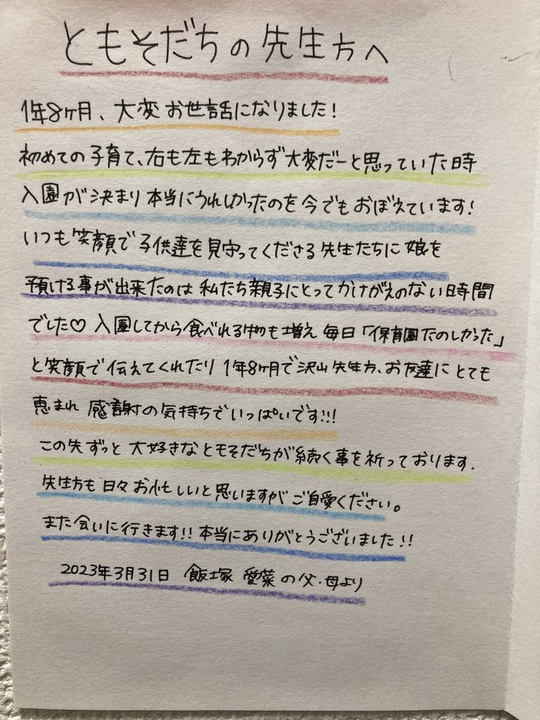 ともそだちの先生方へ
1年8ヶ月、大変お世話になりました!
初めての子育て、右も左もわからず大変だーと思っていた時
入園が決まり本当にうれしかったのを今でもおぼえています!
いつも笑顔で子供達を見守ってくださる先生たちに娘を
預ける事が出来たのは私たち親子にとってかけがえのない時間
でした♡入園してから食べれる物も増え毎日「保育園たのしかった」
と笑顔で伝えてくれたり1年8ヶ月で沢山先生方、お友達にとても
恵まれ感謝の気持ちでいっぱいです!!!
この先ずっと大好きなともそだちが続く事を祈っております.
先生方も日々お忙しいと思いますがご自愛ください。
また会いに行きます!!本当にありがとうございました!!
2023年3月31日 飯塚 愛菜の父・母より